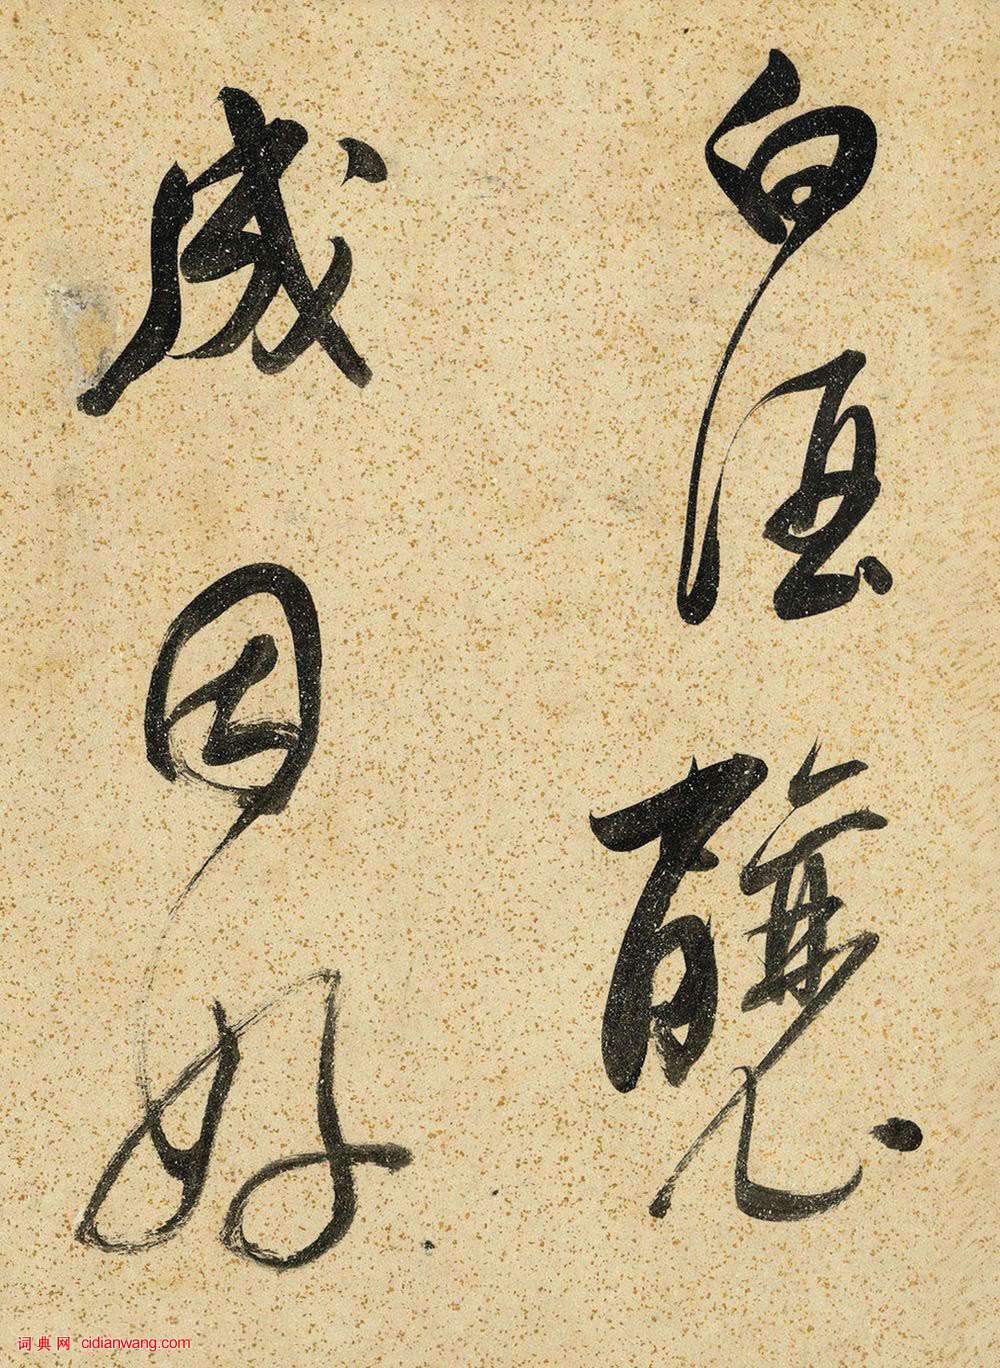 白酒釀
成因好
词典网 cidianwang.com